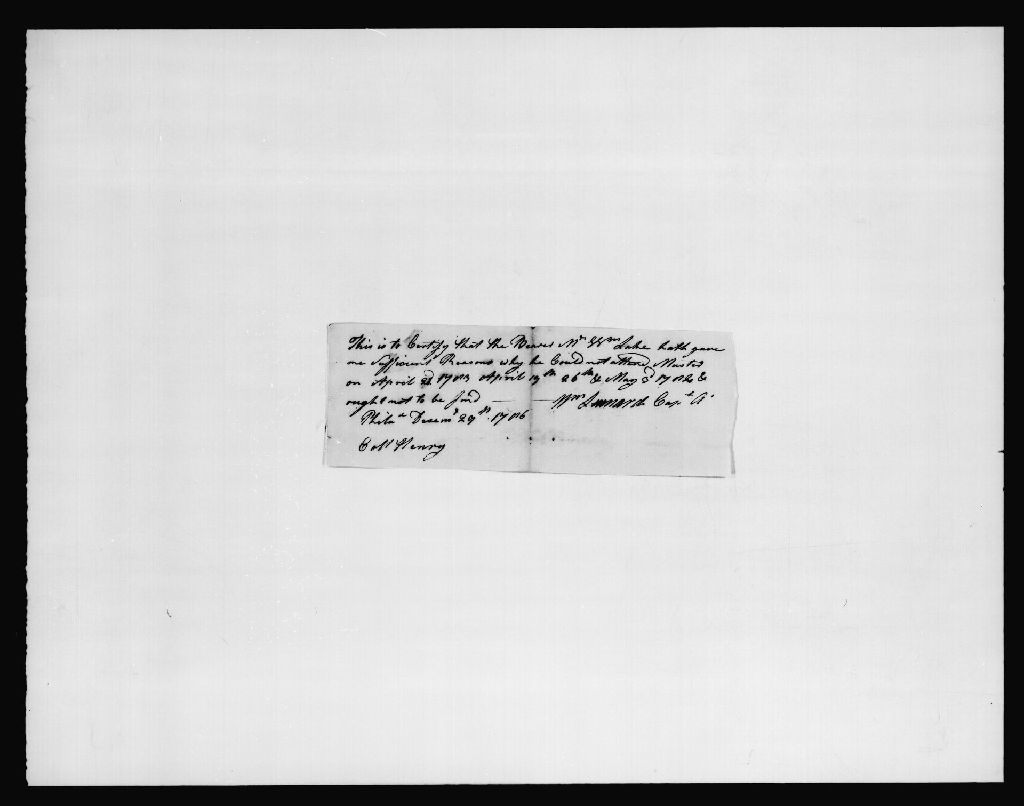 This is to Certify that the Bearer Mr Wm Luke hath gave
me Sufficient Reasons why he Could not attend Muster
on April 2d 1783 April 19th 26th & May 3d 1784 &
ought not to be find — — Wm Leonard Capt A
Phila Decemr 29th 1786
Coll Henry